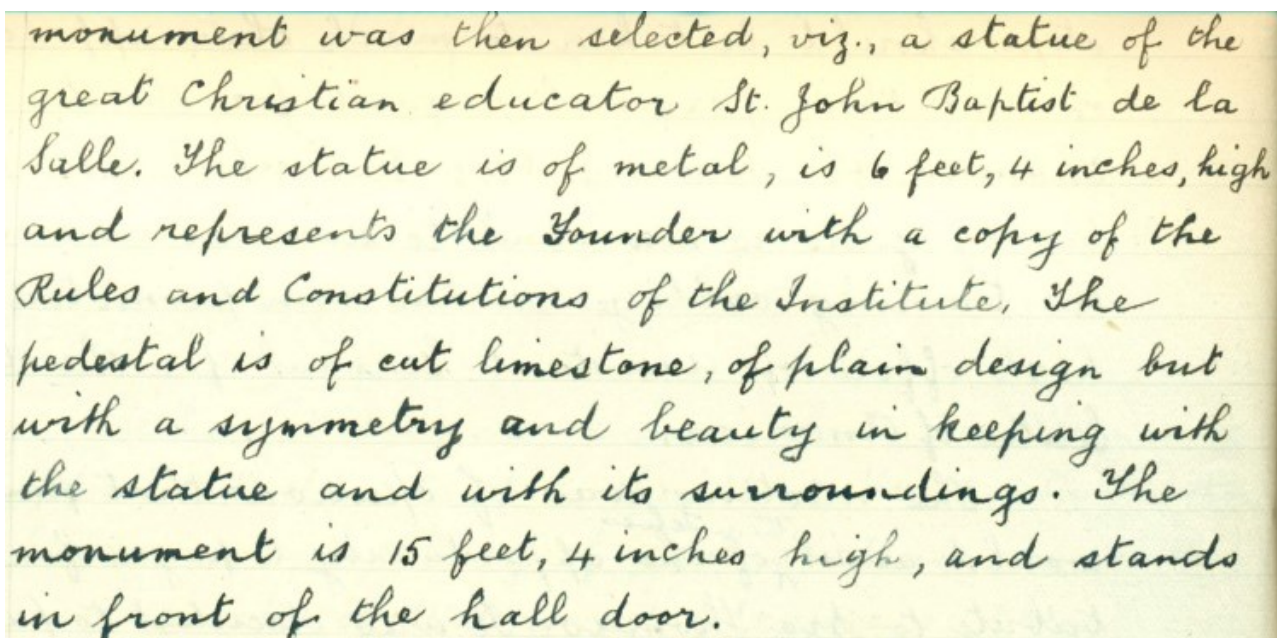 monument was then selected, viz., a statue of the
great Christian educator St. John Baptist de la
Salle. The statue is of metal, is 6 feet, 4 inches, high
and represents the Founder with a copy of the
Rules and Constitutions of the Institute. The
pedestal is of cut limestone, of plain design but
with a symmetry and beauty in keeping with
the statue and with its surroundings. The
monument is 15 feet, 4 inches high, and stands
in front of the hall door.